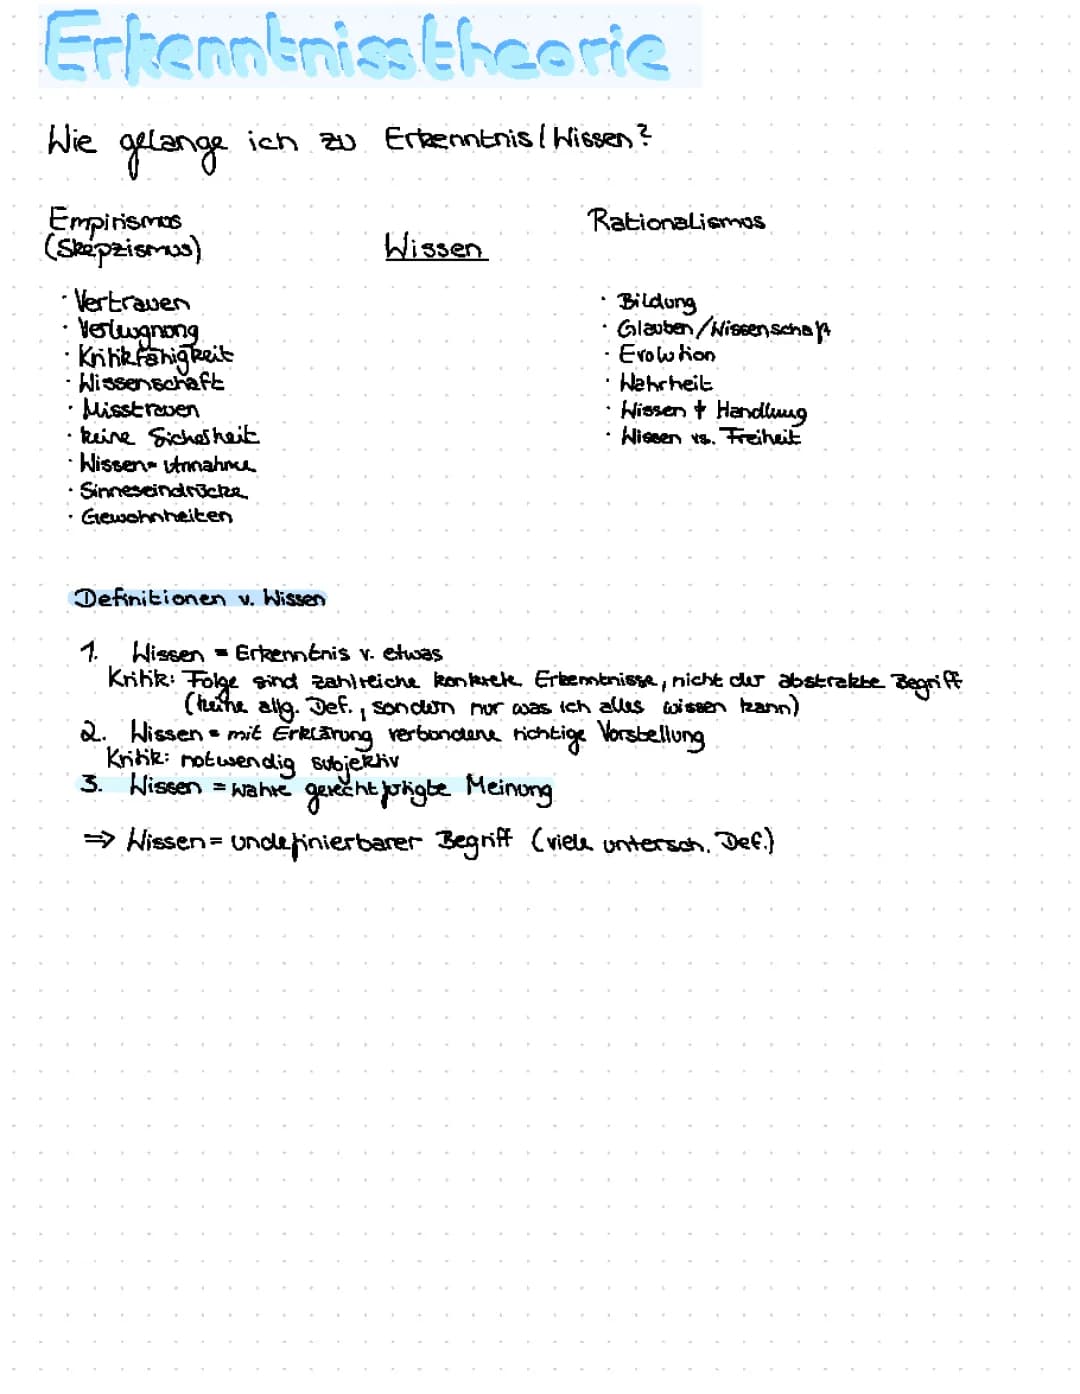 Erkenntnisstheorie
Wie gelange ich zu Erkenntnis/Wissen?
Empirismus
(Skepzismus)
Wissen
Rationalismus
· Vertrauen
· Verleugnung
· Kritikfähigkeit
· Wissenschaft
· Misstrauen
· keine Sicherheit
· Wissen = Annahme
· Sinneseindrücke
· Gewohnheiten
· Bildung
· Glauben/Wissenschaft
· Evolution
· Wahrheit
· Wissen + Handlung
· Wissen vs. Freiheit
Definitionen v. Wissen
1. Wissen = Erkenntnis v. etwas
Kritik: Folge sind zahlreiche konkrete Erkenntnisse, nicht der abstrakte Begriff
(keine allg. Def., sondern nur was ich alles wissen kann)
2. Wissen = mit Erklärung verbundene richtige Vorstellung
Kritik: notwendig subjektiv
3. Wissen = wahre gerechtfertigte Meinung
⇒ Wissen = undefinierbarer Begriff (viele untersch. Def.)